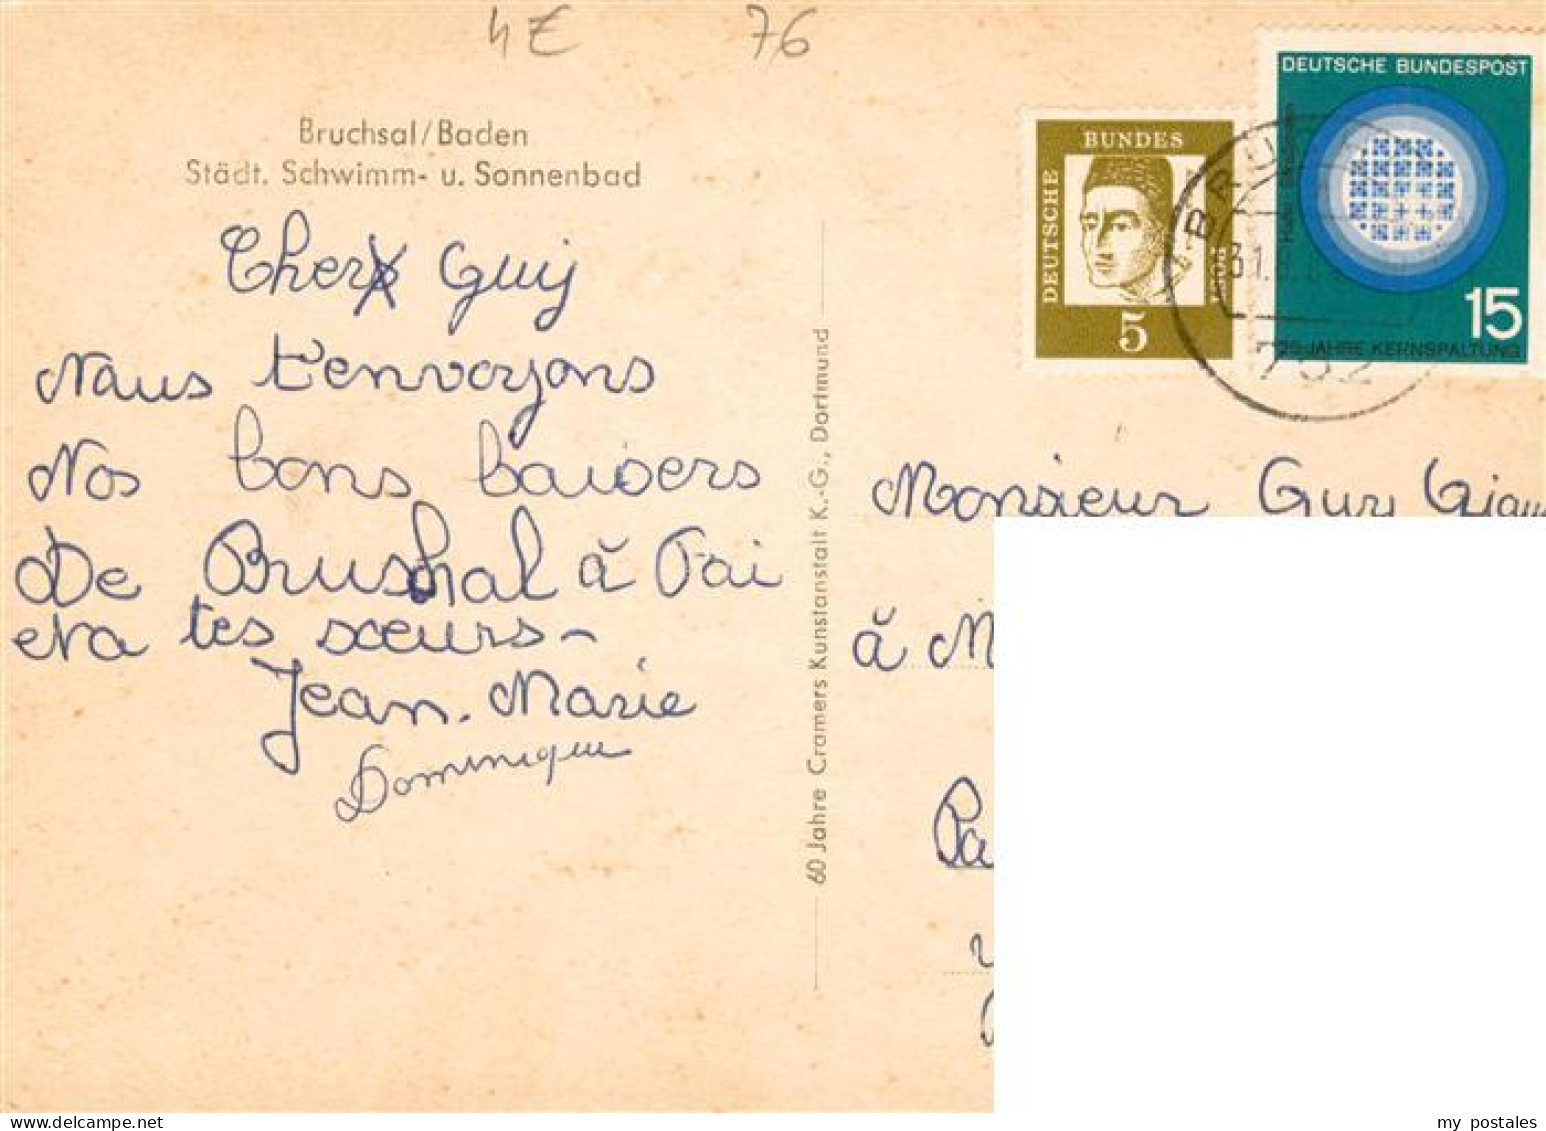 4€ 76
Bruchsal/Baden
Städt. Schwimm- u. Sonnenbad
Cher Guy
Naus t'envoyons
Nos bons baisers
De Brushal à Toi
et a tes sœurs -
Jean. Marie
Dominique
60 Jahre Cramers Kunstanstalt K.-G., Dortmund
DEUTSCHE
BUNDES
5
DEUTSCHE BUNDESPOST
15
25 JAHRE KERNSPALTUNG
BRU
752
Monsieur Guy
à M
Pa
my postales